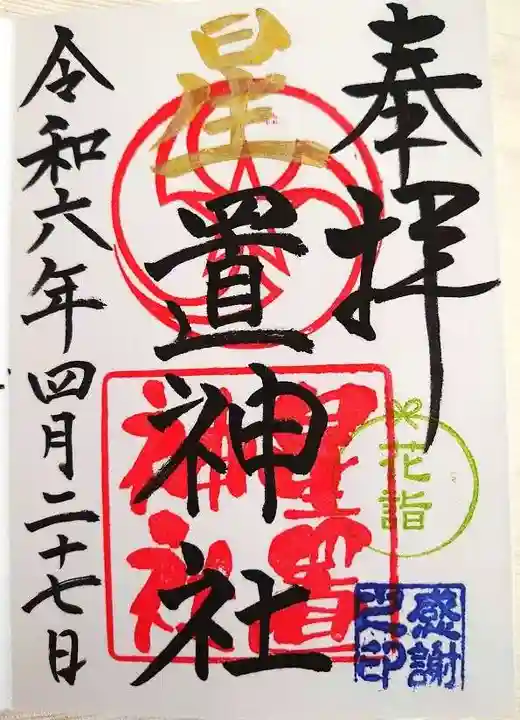 奉拝
星置神社
星置
神社
花詣
感謝
之印
令和六年四月二十七日